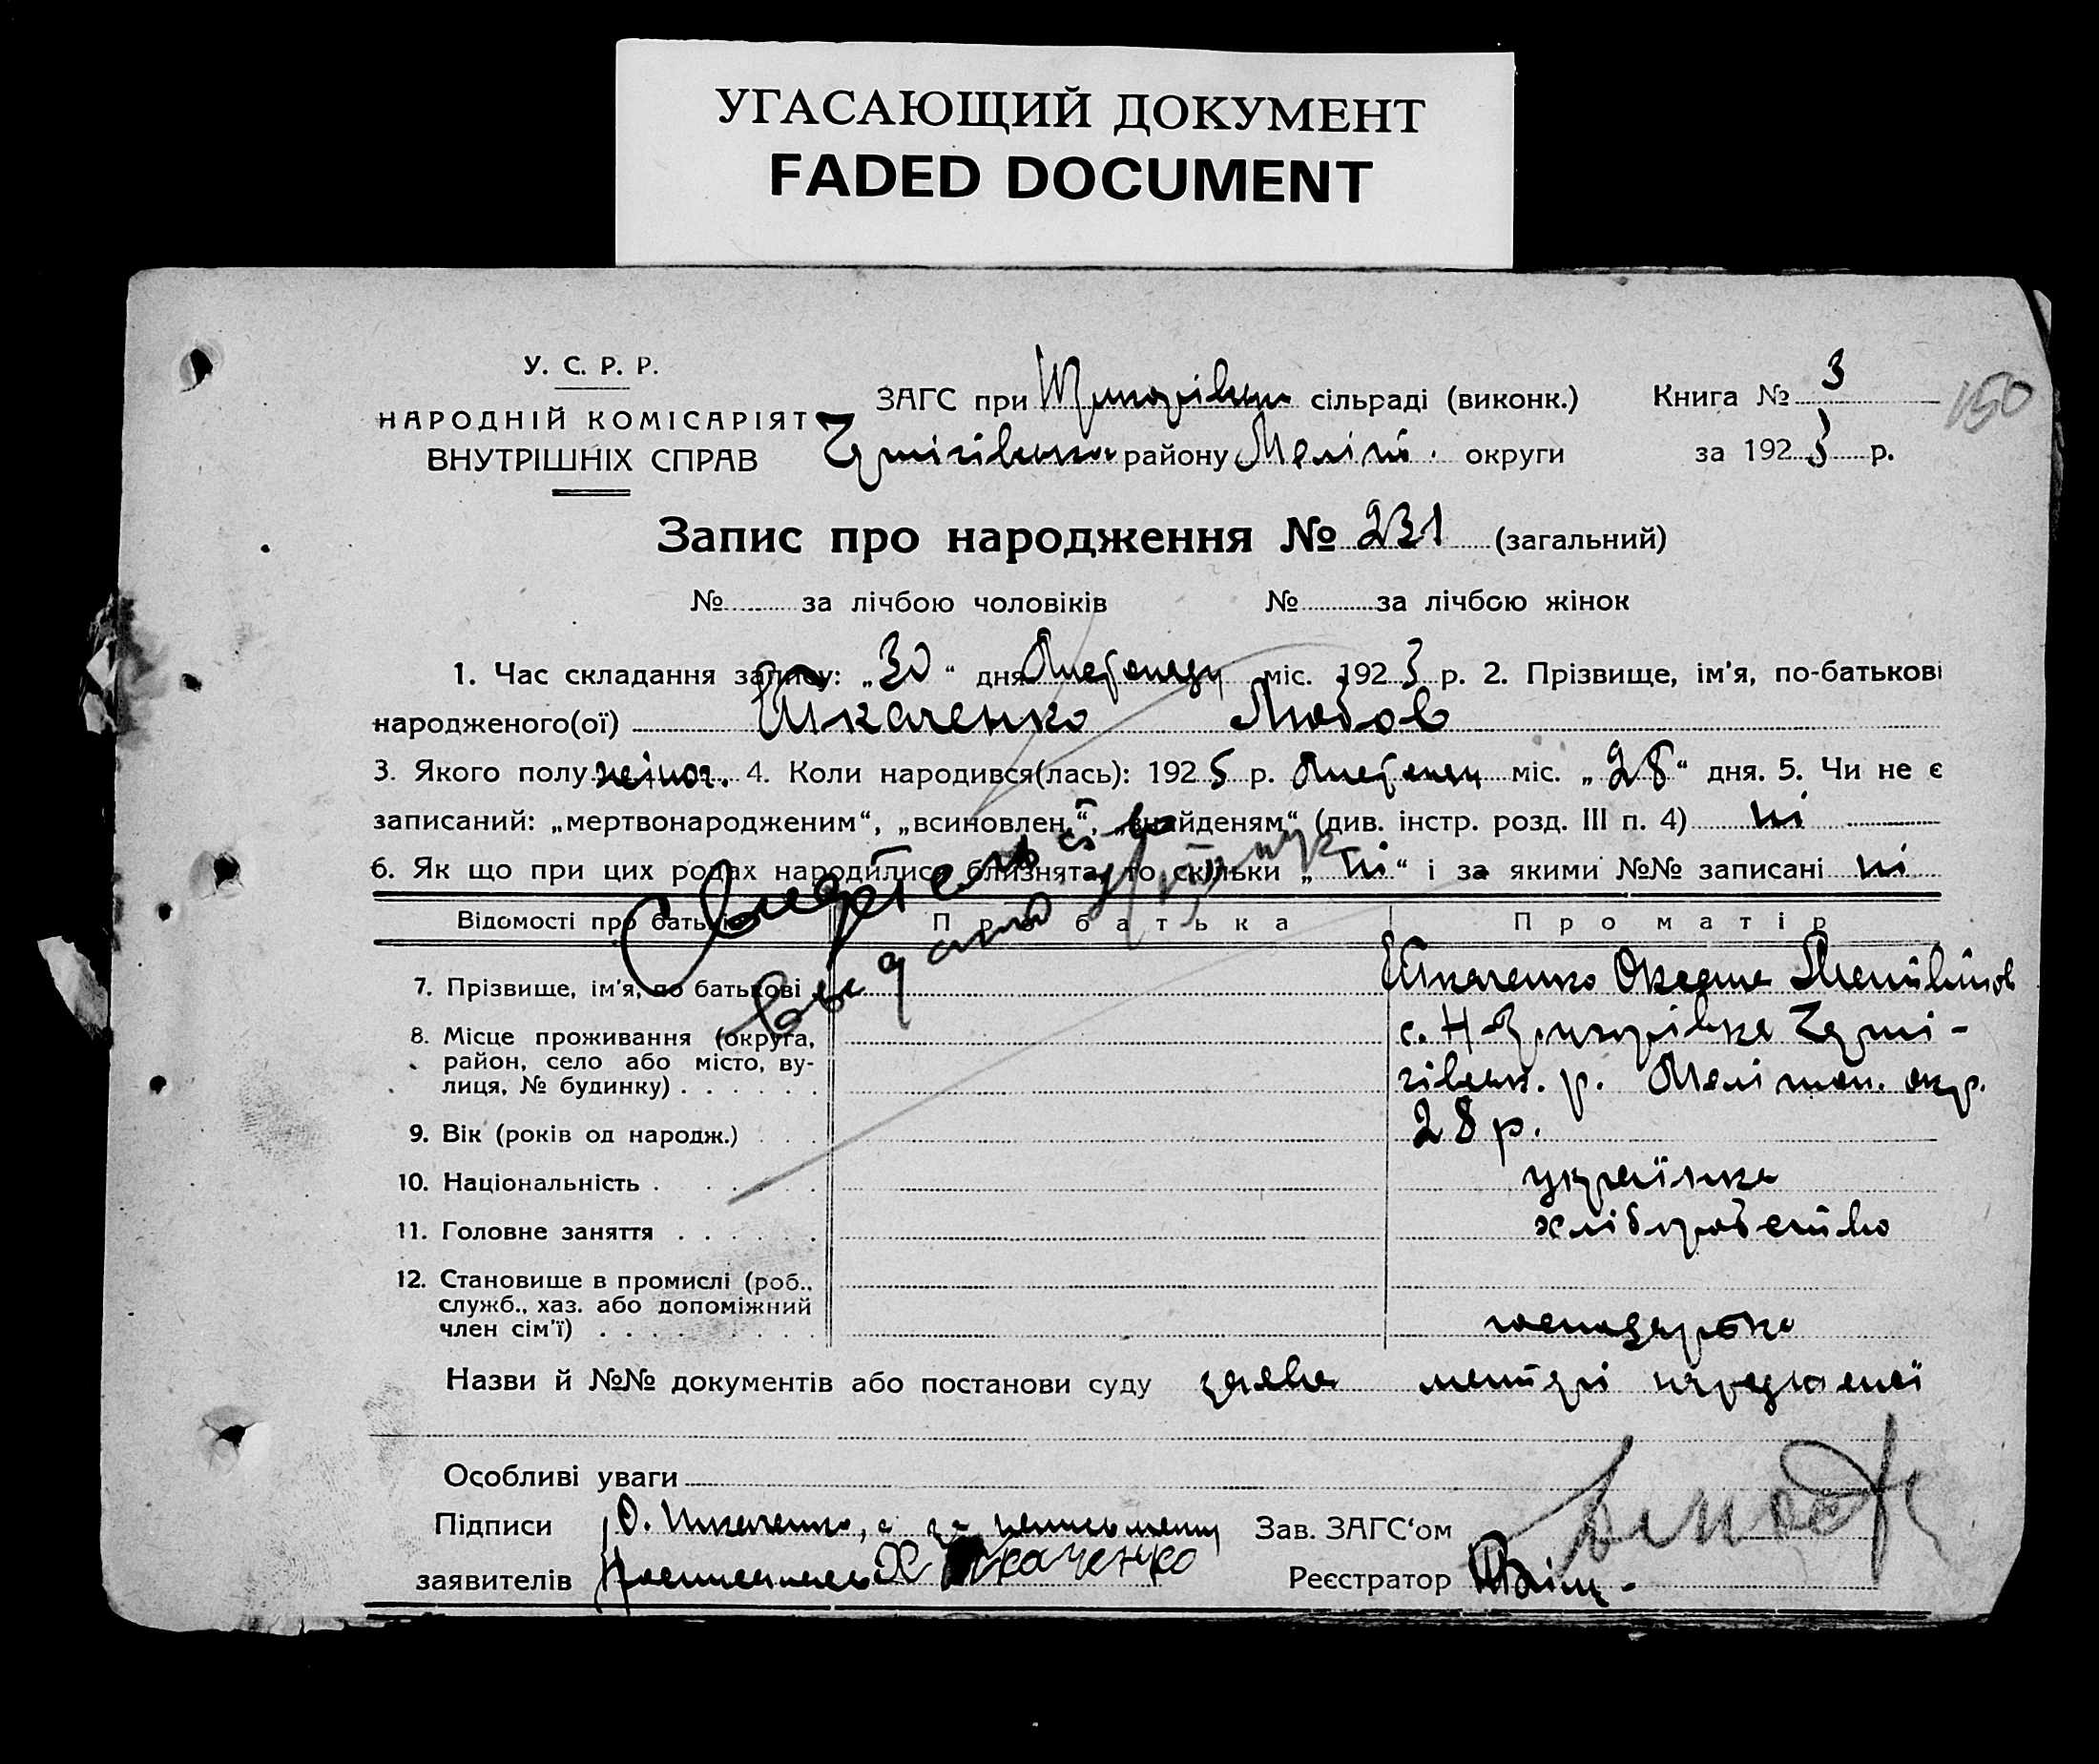 УГАСАЮЩИЙ ДОКУМЕНТ
FADED DOCUMENT
У. С. Р. Р.
НАРОДНІЙ КОМІСАРІЯТ
ВНУТРІШНІХ СПРАВ
ЗАГС при сільраді (виконк.)
Книга № 3
150
району Меліт. округи
за 1925 р.
Запис про народження № 231 (загальний)
№ за лічбою чоловіків № за лічбою жінок
1. Час складання запису: „30“ дня Листопаду міс. 1925 р. 2. Прізвище, ім'я, по-батькові
народженого(ої) Ткаченко Любов
3. Якого полу жіноч. 4. Коли народився(лась): 1925 р. Листопаду міс. „28“ дня. 5. Чи не є
записаний: „мертвонародженим“, „всиновлен.“, „знайденям“ (див. інстр. розд. III п. 4) ні
6. Як що при цих родах народилися близнята, то скільки „ні“ і за якими №№ записані ні
Відомості про батьків Про батька Про матір
7. Прізвище, ім'я, по батькові Ткаченко
8. Місце проживання (округа,
район, село або місто, ву-
лиця, № будинку)
с.
р. Мелітоп. окр.
9. Вік (років од народж.) 28 р.
10. Національність українка
11. Головне заняття хліборобство
12. Становище в промислі (роб.,
служб., хаз. або допоміжний
член сім'ї) господарька
Назви й №№ документів або постанови суду заява матері народженої
Особливі уваги
Підписи О. Ткаченко, а за неписьменну
Зав. ЗАГС'ом
заявителів Х Ткаченко
Реєстратор